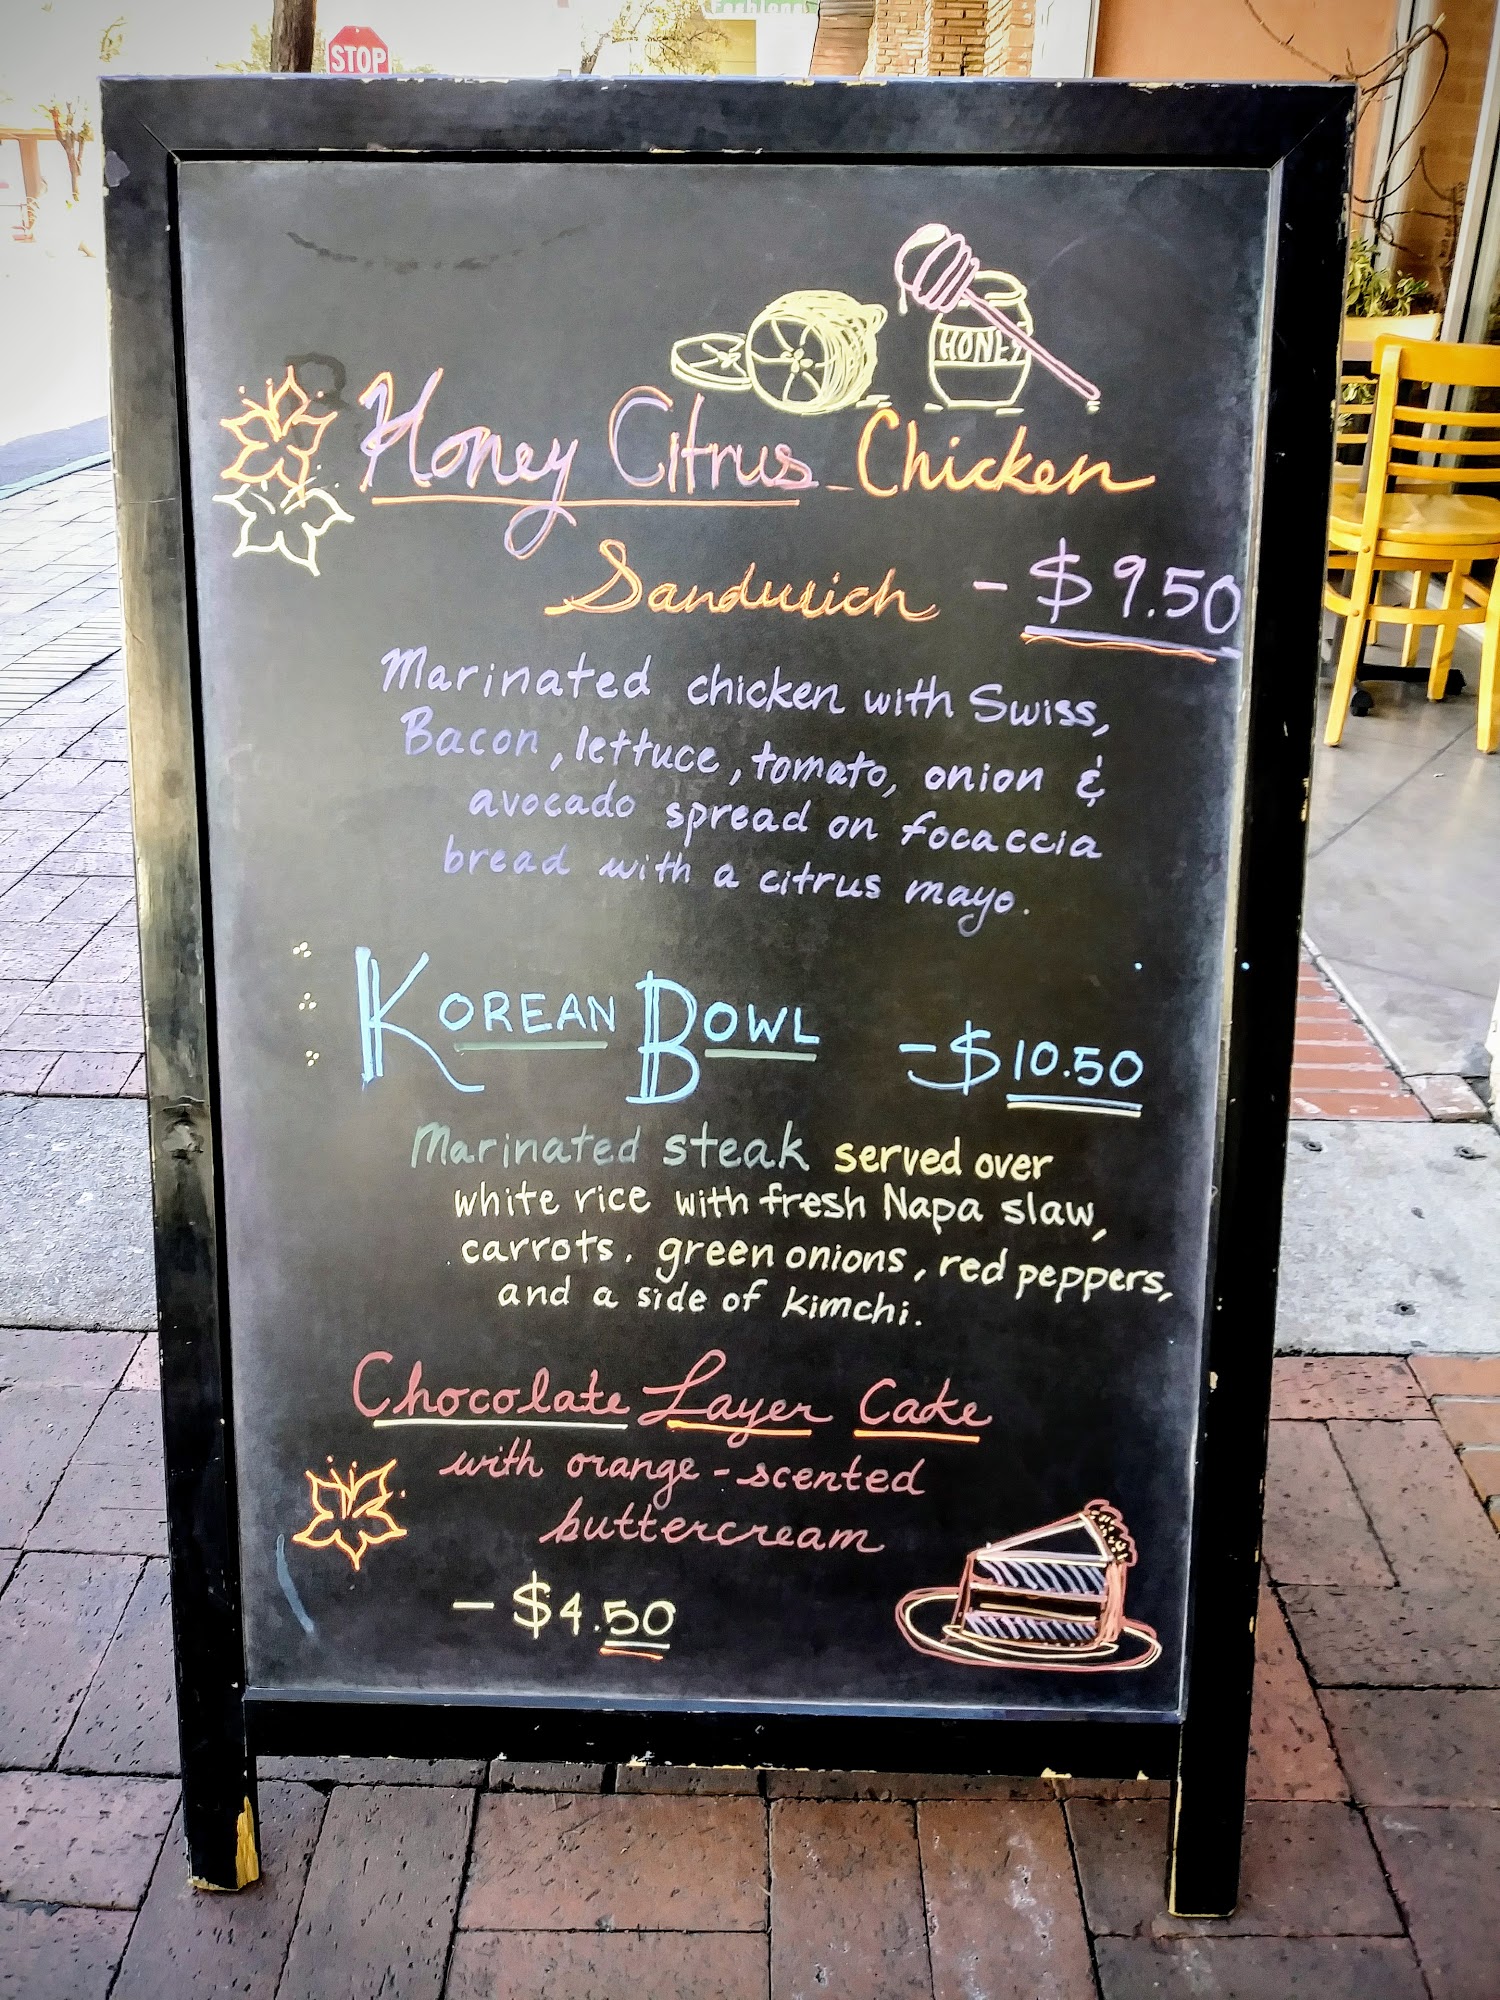 Fashions
STOP
HONEY
Honey Citrus Chicken
Sandwich - $9.50
Marinated chicken with Swiss,
Bacon, lettuce, tomato, onion &
avocado spread on focaccia
bread with a citrus mayo.
KOREAN BOWL - $10.50
Marinated steak served over
white rice with fresh Napa slaw,
carrots, green onions, red peppers,
and a side of kimchi.
Chocolate Layer Cake
with orange-scented
buttercream
- $4.50